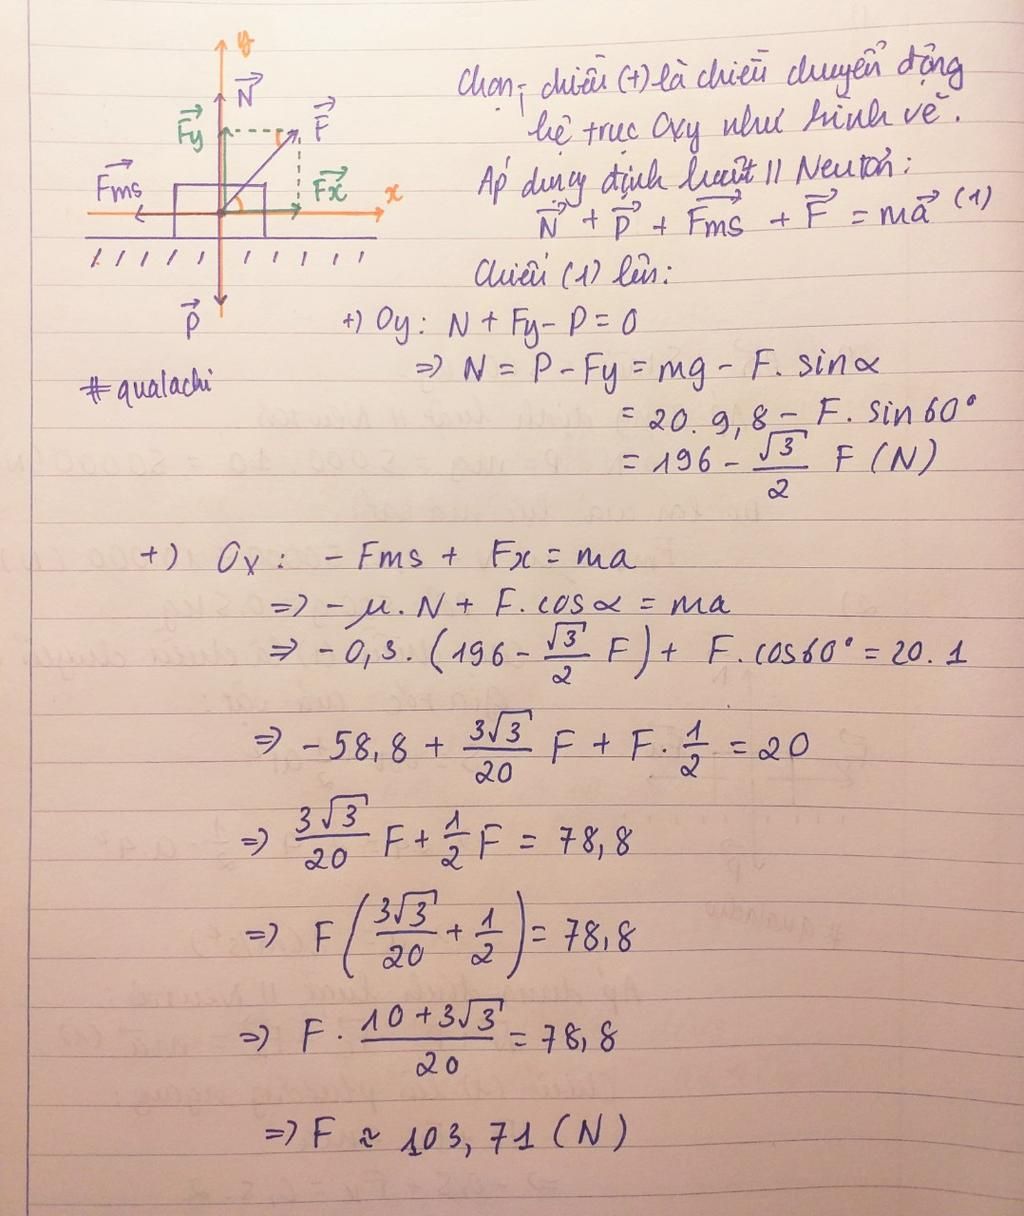 y
N⃗
F⃗y
F⃗
F⃗ms
F⃗x
x
P⃗
#qualachi
Chọn; chiều (+) là chiều chuyển động
hệ trục Oxy như hình vẽ.
Áp dụng định luật II Newton:
N⃗ + P⃗ + F⃗ms + F⃗ = ma⃗ (1)
Chiếu (1) lên:
+) Oy: N + Fy - P = 0
=> N = P - Fy = mg - F. sinα
= 20. 9,8 - F. sin60°
= 196 - √3/2 F (N)
+) Ox: - Fms + Fx = ma
=> - μ. N + F. cosα = ma
=> - 0,3. (196 - √3/2 F) + F. cos60° = 20. 1
=> - 58,8 + 3√3/20 F + F. 1/2 = 20
=> 3√3/20 F + 1/2 F = 78,8
=> F (3√3/20 + 1/2) = 78,8
=> F. (10 + 3√3)/20 = 78,8
=> F ≈ 103,71 (N)